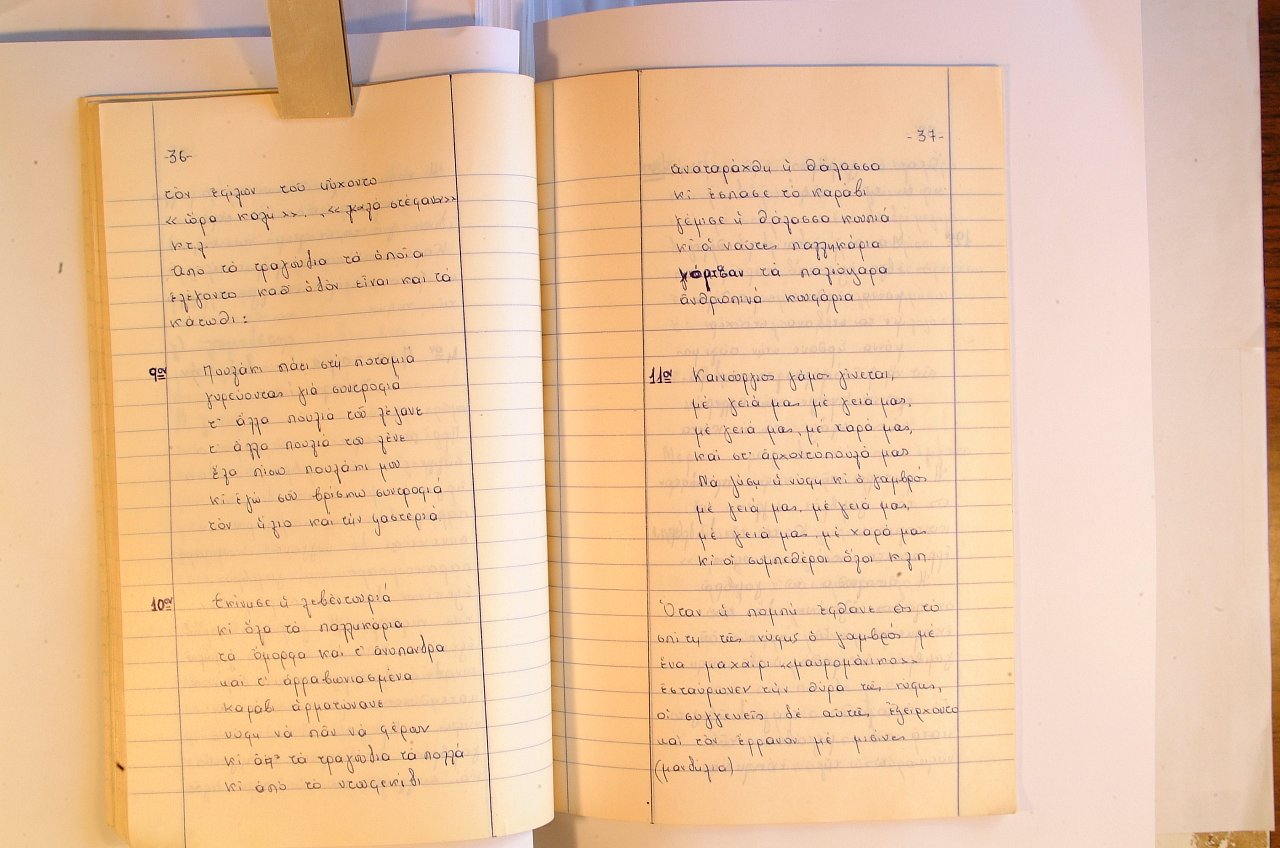 -36-
τὸν ἔφιλων τοῦ ηὔχοντο
«ὥρα καλή». «καλά στέφανα»
κ.τ.λ.
Ἀπό τά τραγούδια τά ὁποῖα
ἐλέγοντο καθ' ὁδόν εἶναι καί τά
κάτωθι:
9ον Πουλάκι πάει στή ποταμιά
γυρεύοντας γιά συντροφιά
τ' ἄλλα πουλιά τοῦ λέγανε
τ' ἄλλα πουλιά τοῦ λένε
ἔλα πίσω πουλάκι μου
κι ἐγώ σοῦ βρίσκω συντροφιά
τόν ἥλιο καί τήν γαστεριά
10ον Ἐκίνησε ἡ λεβεντουριά
κι ὅλα τά παλληκάρια
τα ὄμορφα καί τ' ἀνύπανδρα
καί τ' ἀρραβωνιασμένα
καραβι ἀρματώνανε
νυφη νά πᾶν νά φέρουν
κι ἀπ' τά τραγούδια τά πολλά
κι ἀπό τό
-37-
ἀναταράχθη ἡ θάλασσα
κι ἔσπασε τό καραβι
γέμισε ἡ θάλασσα κουπιά
κι οἱ ναῦτες παλληκάρια
τά
ἀνθρώπινά κουφάρια
11ον Καινούργιος γάμος γίνεται,
μέ γειά μας μέ γειά μας,
μέ γειά μας, μέ χαρά μας,
καί στ' ἀρχοντόπουλά μας
Νά ζήση ἡ νυφη κι ὁ γαμβρός
μέ γειά μας, μέ γειά μας,
μέ γειά μας, μέ χαρά μας
κι οἱ συμπεθέροι ὅλοι κ.λ.π.
Ὅταν ἡ πομπή ἔφθανε εἰς τό
σπίτι τῆς νύφης ὁ γαμβρός μέ
ἕνα μαχαίρι «μαυρομάνικο»
ἐσταύρωνεν τήν θύρα τῆς νύφης,
οἱ συγγενεῖς δέ αὐτῆς ἐξείρχοντο
καί τόν ἔρραναν μέ
(μανδύλια)